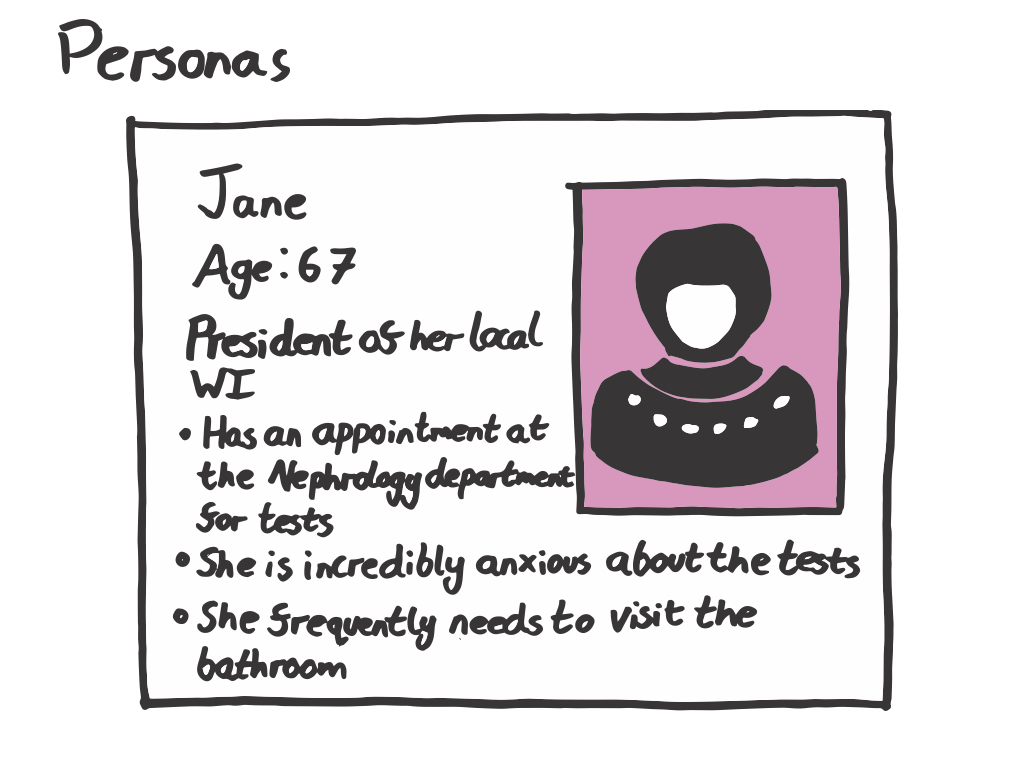 Personas
Jane
Age: 67
President of her local
WI
• Has an appointment at
the Nephrology department
for tests
• She is incredibly anxious about the tests
• She frequently needs to visit the
bathroom